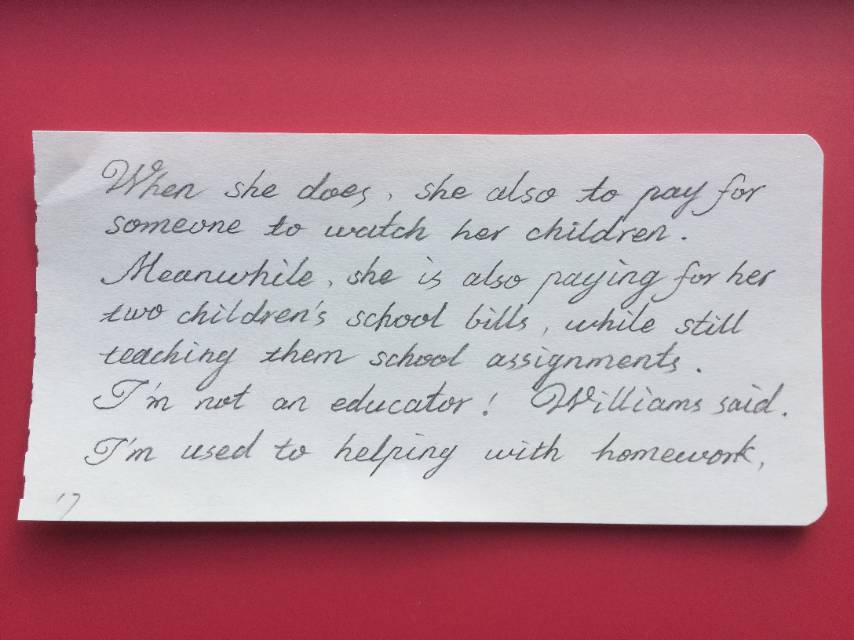 When she does, she also to pay for
someone to watch her children.
Meanwhile, she is also paying for her
two children's school bills, while still
teaching them school assignments.
I'm not an educator! Williams said.
I'm used to helping with homework,
17